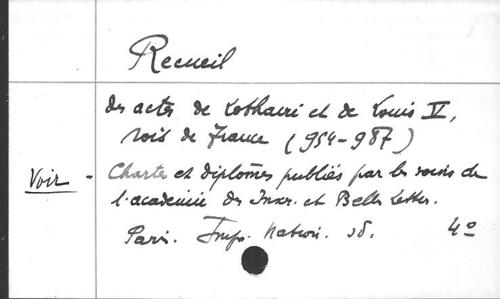 Recueil
des actes de Lothaire et de Louis V,
rois de France (954-987)
Voir - Chartes et diplômes publiés par les soins de
l'académie des Inscr. et Belles Lettr.
Paris. Imp. Nation. sd. 4º